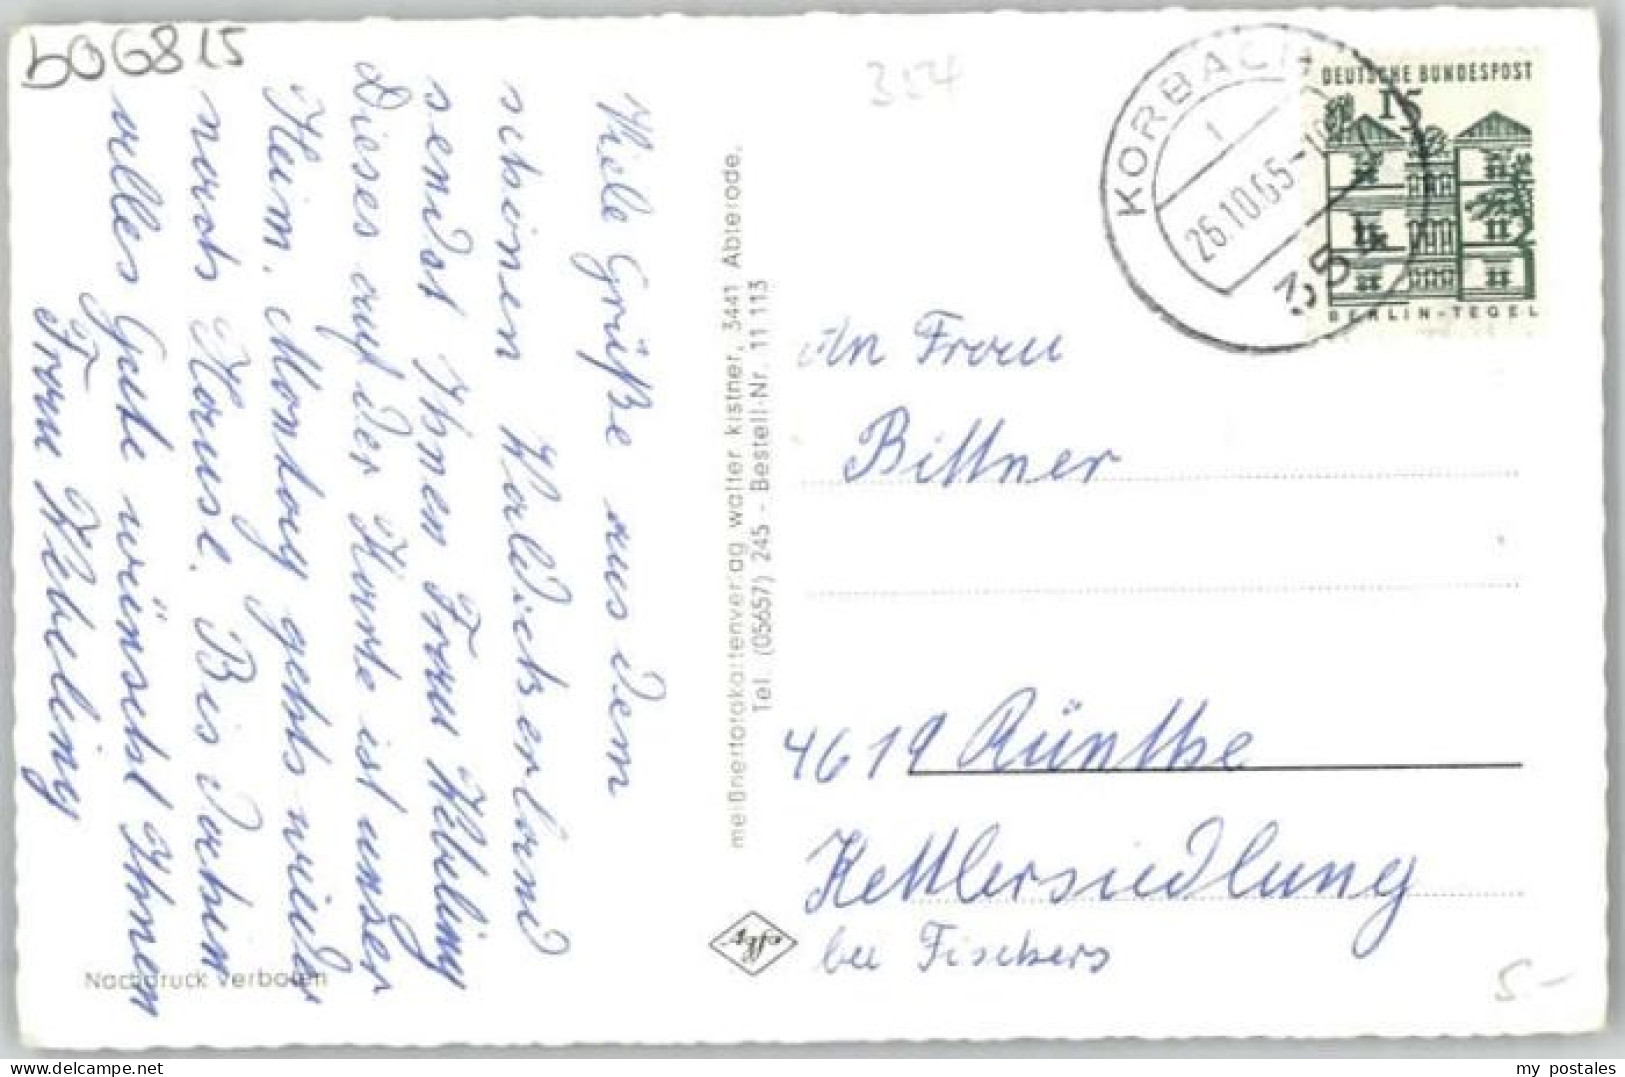 b06815
354
KORBACH
1
26.10.65-18
354
DEUTSCHE BUNDESPOST
15
BERLIN-TEGEL
Viele Grüße aus dem
schönen Waldickerland
sendst Ihnen Frau Hebeling
Dieses auf der Karte ist unser
Heim. Montag gehts wieder
nach Hause. Bis dahin
alles Gute wünscht Ihnen
Frau Hebeling
Nachdruck verboten
meißnerfotokartenverlag walter kistner, 3441 Abterode.
Tel. (05657) 245 - Bestell-Nr. 11 113
An Frau
Bittner
4619 Rünthe
Kettlersiedlung
bei Fischers
5.-
my postales